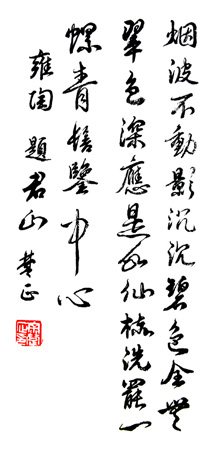 烟波不動影沉沉碧色全無
翠色深應是水仙梳洗罷一
螺青髻鑒中心
雍陶 題君山